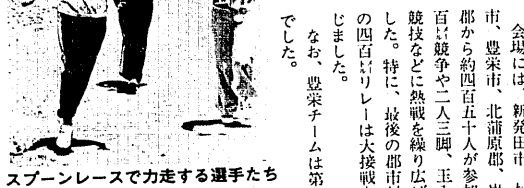 会場には、新発田市、
市、豊栄市、北蒲原郡、
郡から約四百五十人が参加
百㍍競争や二人三脚、玉入
競技などに熱戦を繰り広げ
した。特に、最後の郡市対
の四百㍍リレーは大接戦
じました。
なお、豊栄チームは第
でした。
スプーンレースで力走する選手たち